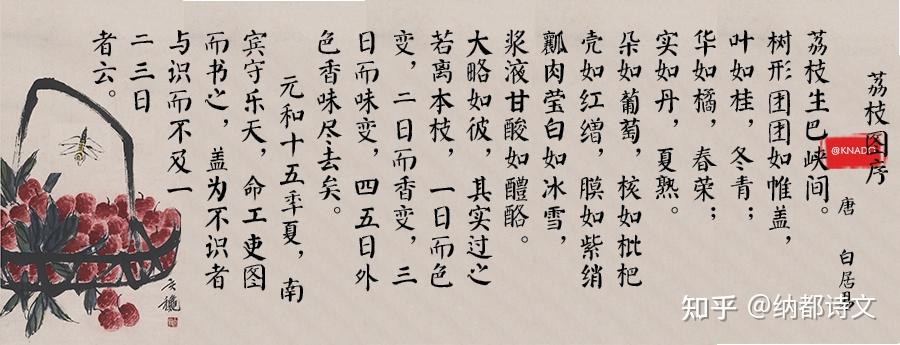 荔枝图序
唐 白居易
荔枝生巴峡间。
树形团团如帷盖，
叶如桂，冬青；
华如橘，春荣；
实如丹，夏熟。
朵如葡萄，核如枇杷
壳如红缯，膜如紫绡
瓤肉莹白如冰雪，
浆液甘酸如醴酪。
大略如彼，其实过之
若离本枝，一日而色
变，二日而香变，三
日而味变，四五日外
色香味尽去矣。
元和十五年夏，南
宾守乐天，命工吏图
而书之，盖为不识者
与识而不及一
二三日
者云。
知乎 @纳都诗文